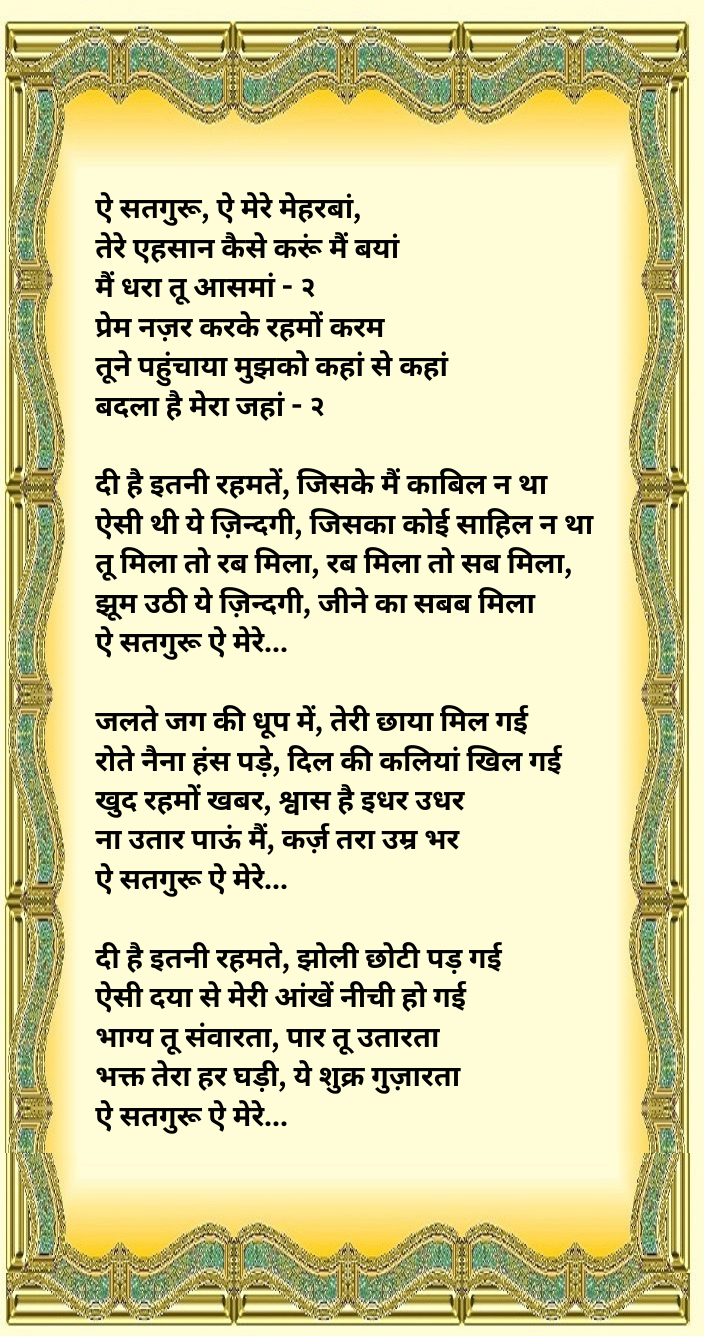 ऐ सतगुरू, ऐ मेरे मेहरबां,
तेरे एहसान कैसे करूं मैं बयां
मैं धरा तू आसमां - २
प्रेम नज़र करके रहमों करम
तूने पहुंचाया मुझको कहां से कहां
बदला है मेरा जहां - २
दी है इतनी रहमतें, जिसके मैं काबिल न था
ऐसी थी ये ज़िन्दगी, जिसका कोई साहिल न था
तू मिला तो रब मिला, रब मिला तो सब मिला,
झूम उठी ये ज़िन्दगी, जीने का सबब मिला
ऐ सतगुरू ऐ मेरे...
जलते जग की धूप में, तेरी छाया मिल गई
रोते नैना हंस पड़े, दिल की कलियां खिल गई
खुद रहमों खबर, श्वास है इधर उधर
ना उतार पाऊं मैं, कर्ज़ तरा उम्र भर
ऐ सतगुरू ऐ मेरे...
दी है इतनी रहमते, झोली छोटी पड़ गई
ऐसी दया से मेरी आंखें नीची हो गई
भाग्य तू संवारता, पार तू उतारता
भक्त तेरा हर घड़ी, ये शुक्र गुज़ारता
ऐ सतगुरू ऐ मेरे...